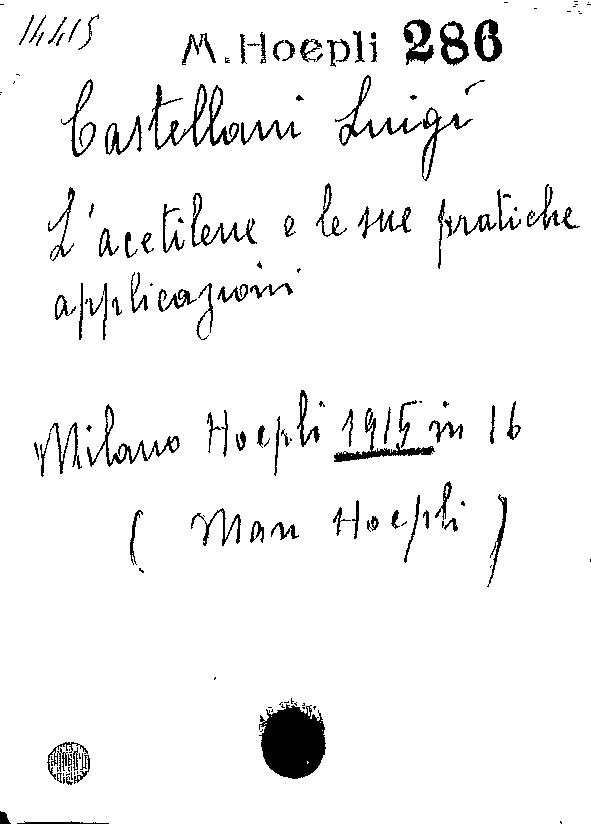 14415
M. Hoepli 286
Castellani Luigi
L'acetilene e le sue pratiche
applicazioni
Milano Hoepli 1915 in 16
( Man Hoepli )